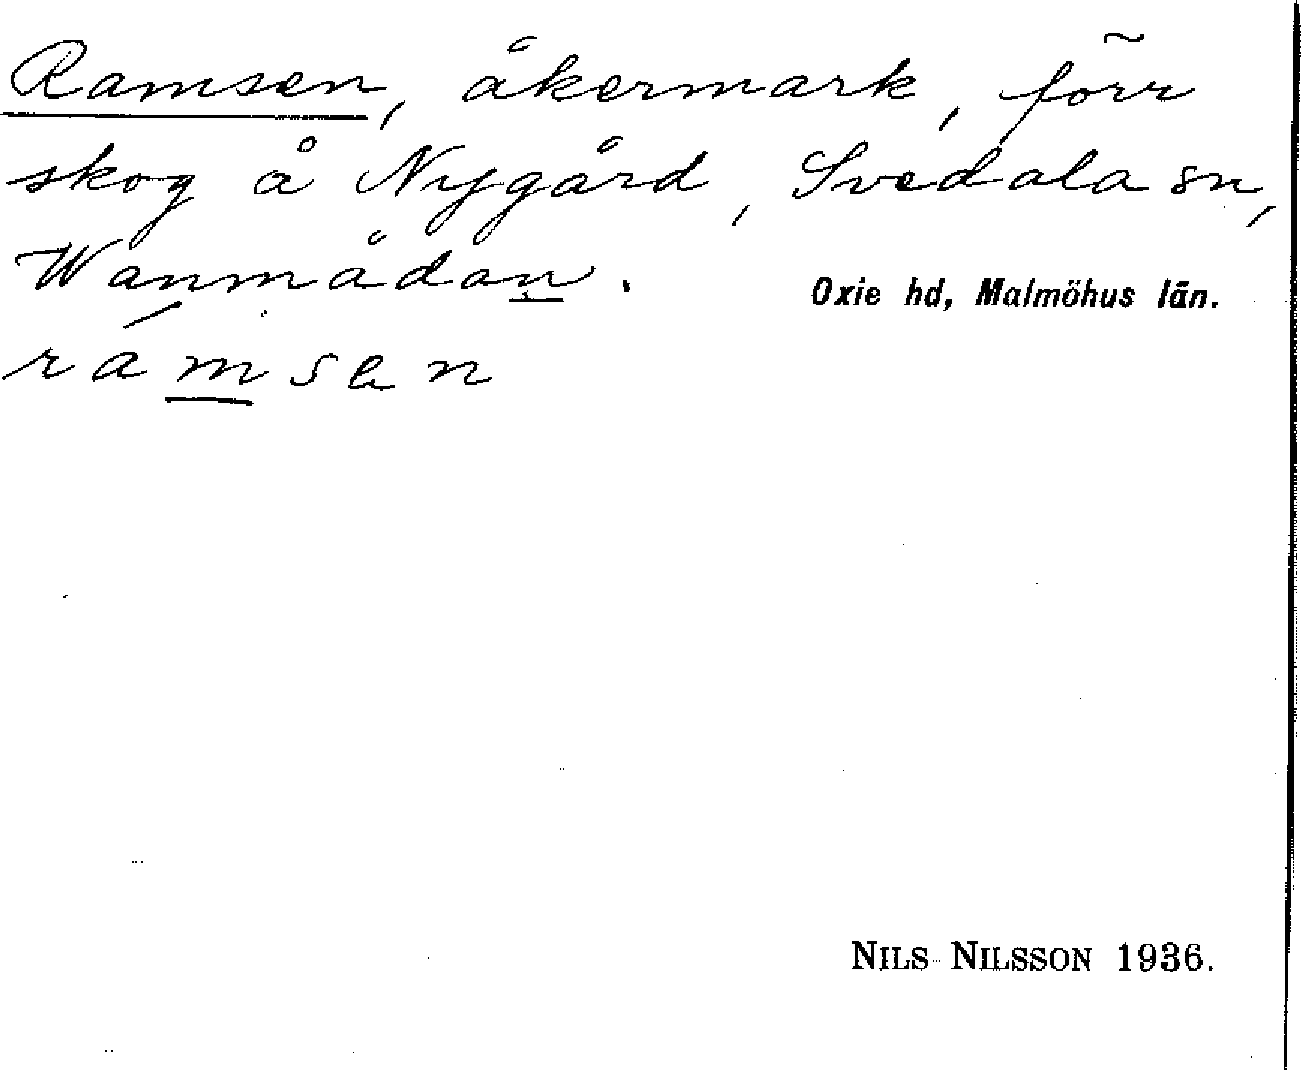 Ramsen, åkermark, förr
skog å Nygård, Svedala sn,
Wanmådan. Oxie hd, Malmöhus län.
ramsen
NILS NILSSON 1936.